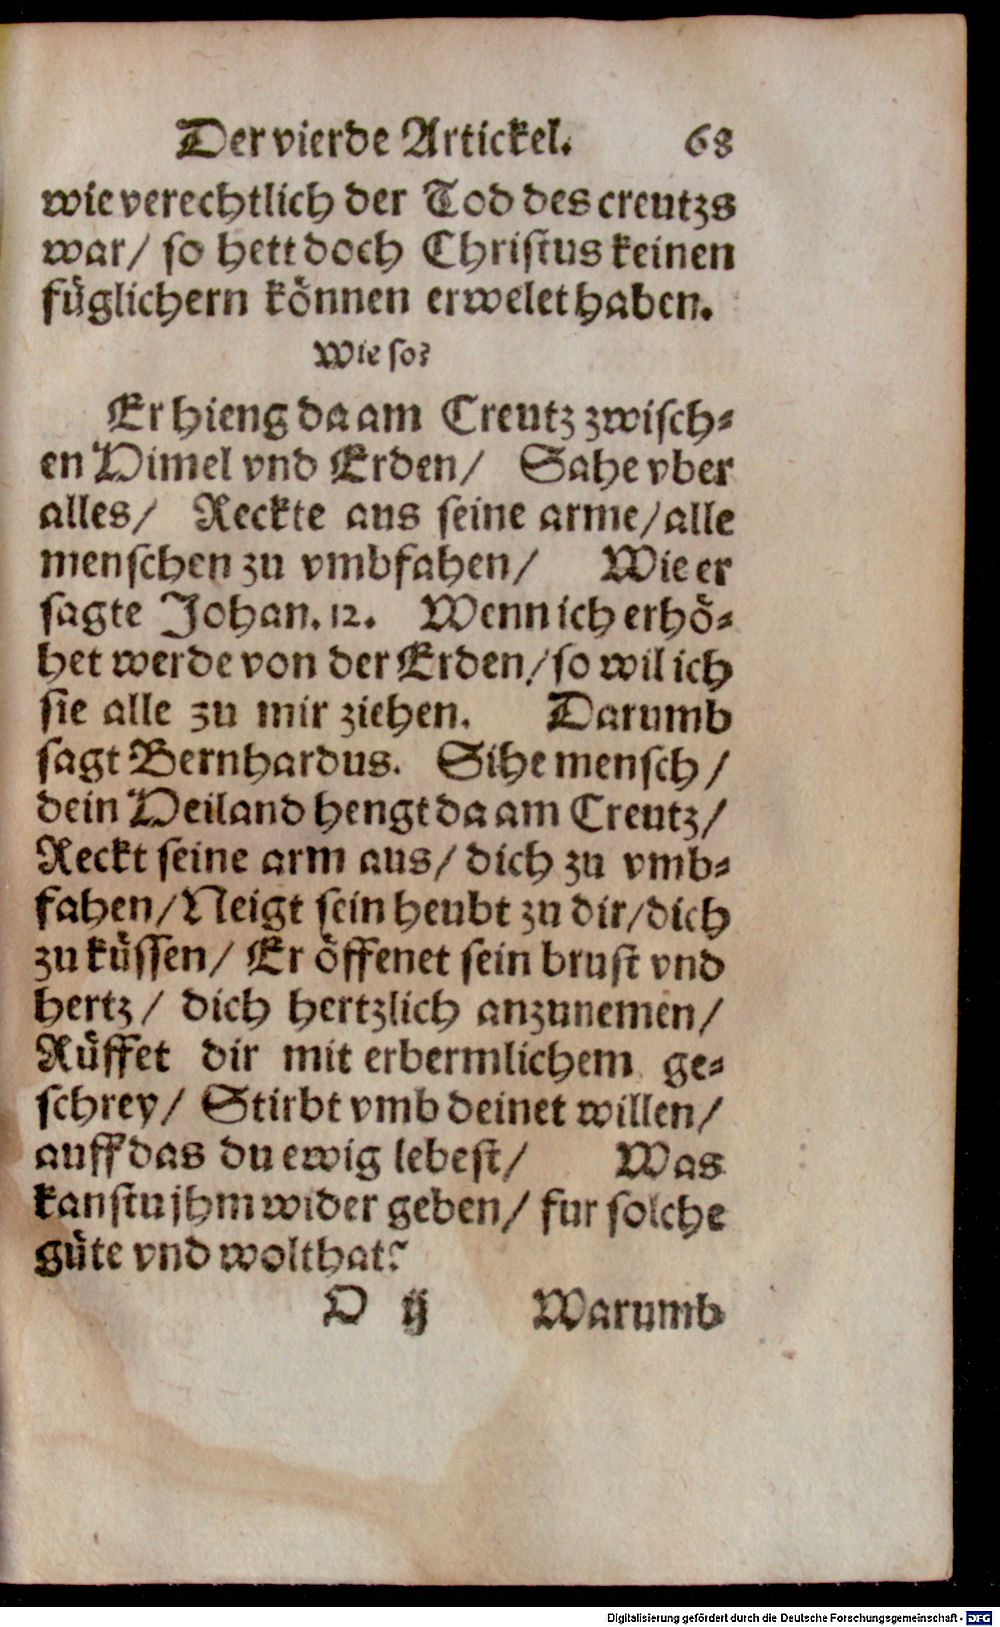 Der vierde Artickel. 68
wie verechtlich der Tod des creutzs
war/ so hett doch Christus keinen
füglichern können erwelet haben.
Wie so?
Er hieng da am Creutz zwisch-
en Himel vnd Erden/ Sahe vber
alles/ Reckte aus seine arme/ alle
menschen zu vmbfahen/ Wie er
sagte Johan. 12. Wenn ich erhö-
het werde von der Erden/ so wil ich
sie alle zu mir ziehen. Darumb
sagt Bernhardus. Sihe mensch/
dein Heiland hengt da am Creutz/
Reckt seine arm aus/ dich zu vmb-
fahen/ Neigt sein heubt zu dir/ dich
zu küssen/ Er öffenet sein brust vnd
hertz/ dich hertzlich anzunemen/
Rüffet dir mit erbermlichem ge-
schrey/ Stirbt vmb deinet willen/
auff das du ewig lebest/ Was
kanstu jhm wider geben/ fur solche
güte vnd wolthat?
H ij Warumb
Digitalisierung gefördert durch die Deutsche Forschungsgemeinschaft - DFG